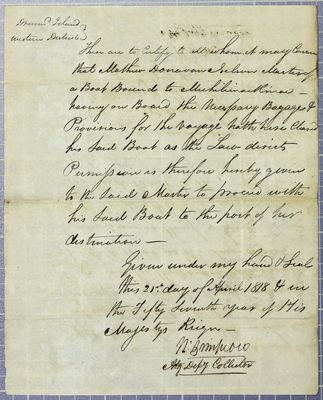 Drumd. Island,
Western District
These are to Certify to all whom it may Concern
that Mathew Donavan Master of
a Boat Bound to Michilimackinac
having on Board the Necessary Bagage &
Provisions for the Voyage hath here Cleared
his Said Boat as the Law directs
Permission is therefore hereby given
to the Said Master to proceed with
his Said Boat to the port of her
destination —
Given under my hand & Seal
this 21st. day of April 1818 & in
the Fifty Seventh year of His
Majestys Reign —
Acg Depy Collector